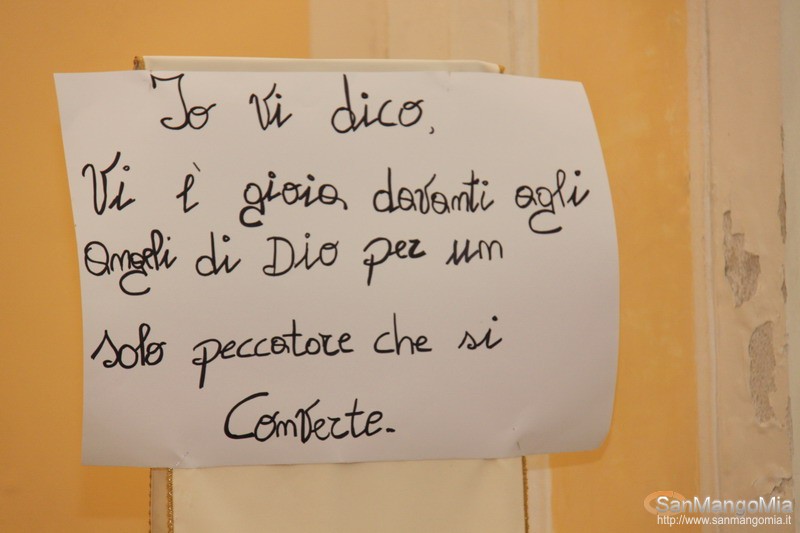 Io vi dico,
Vi è gioia davanti agli
angeli di Dio per un
solo peccatore che si
Converte.
SanMangoMia
http://www.sanmangomia.it